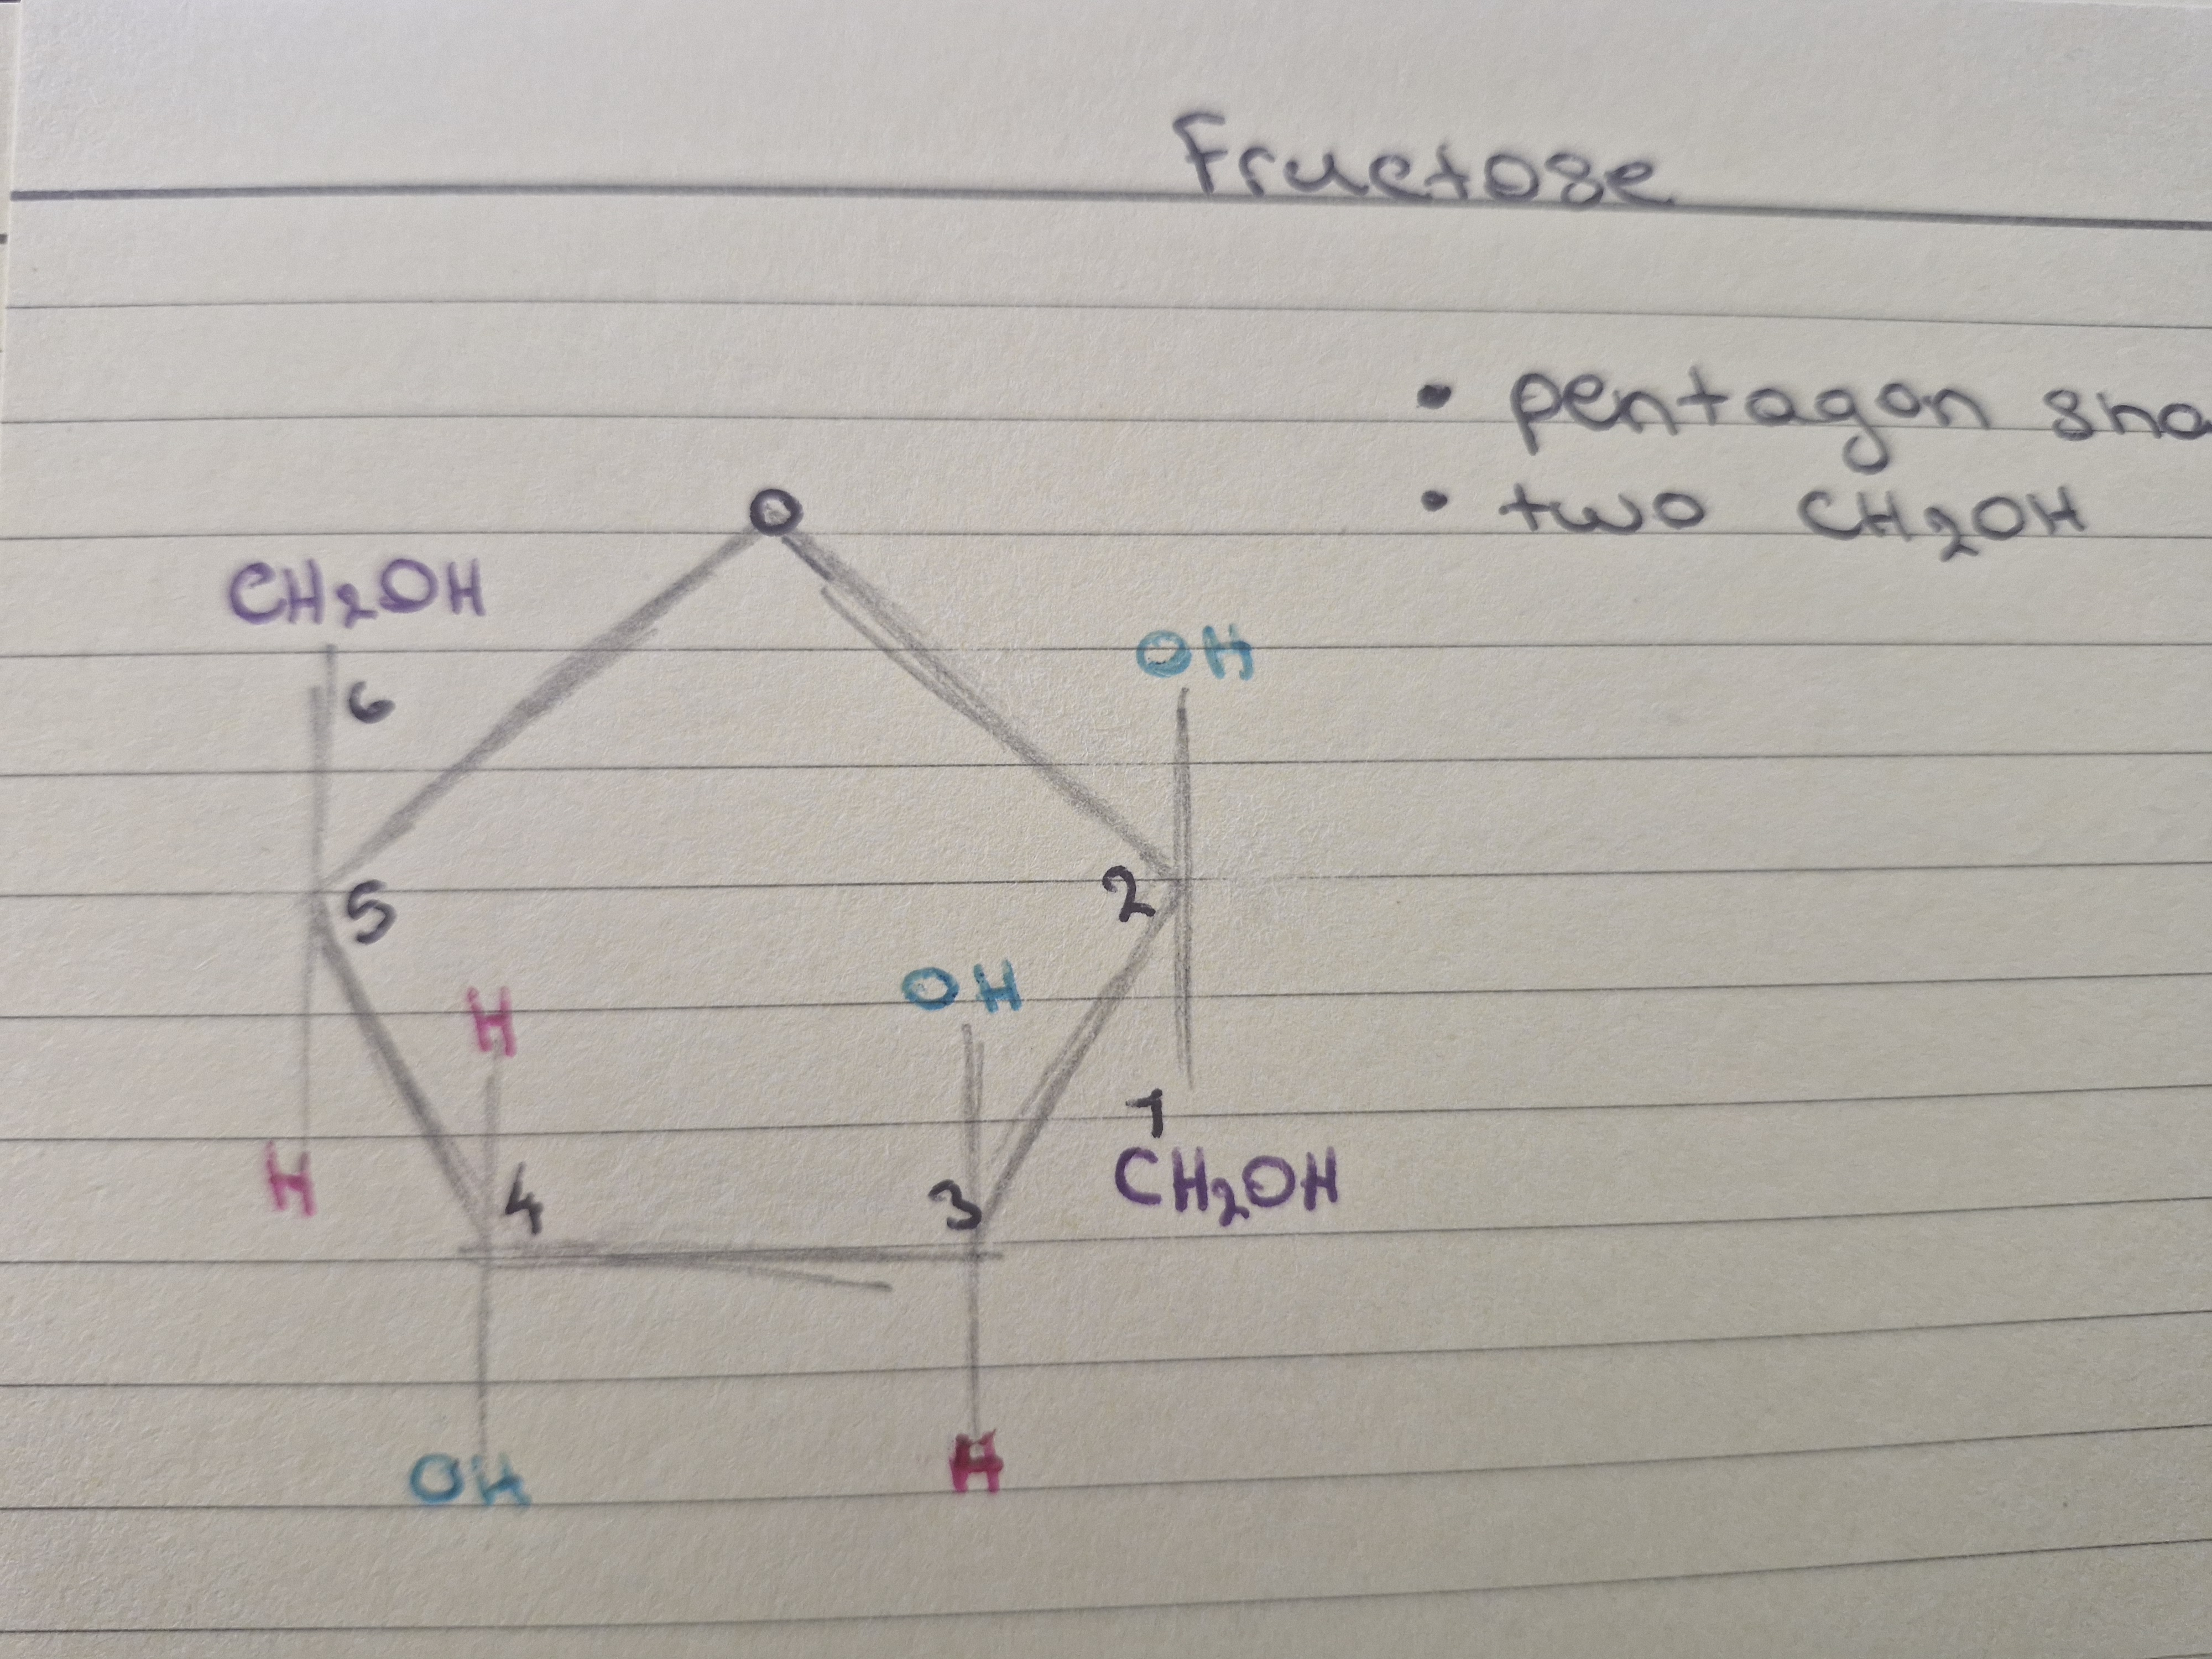 Fructose
• pentagon sha
• two CH₂OH
O
CH₂OH
OH
6
5
2
H
OH
1
H
4
3
CH₂OH
OH
H